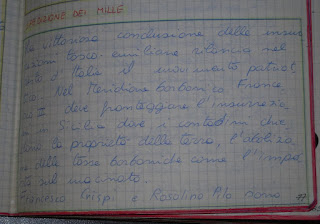 SPEDIZIONE DEI MILLE
La vittoriosa conclusione delle insur
rezioni tosco-emiliane rilancia nel
resto d'Italia il movimento patriot
tico. Nel Meridione borbonico France
II deve fronteggiare l'insurrezio
in Sicilia dove i contadini chie
la proprietà della terra, l'aboliz
delle tasse borboniche come l'impo
sul macinato.
Francesco Crispi e Rosolino Pilo sono